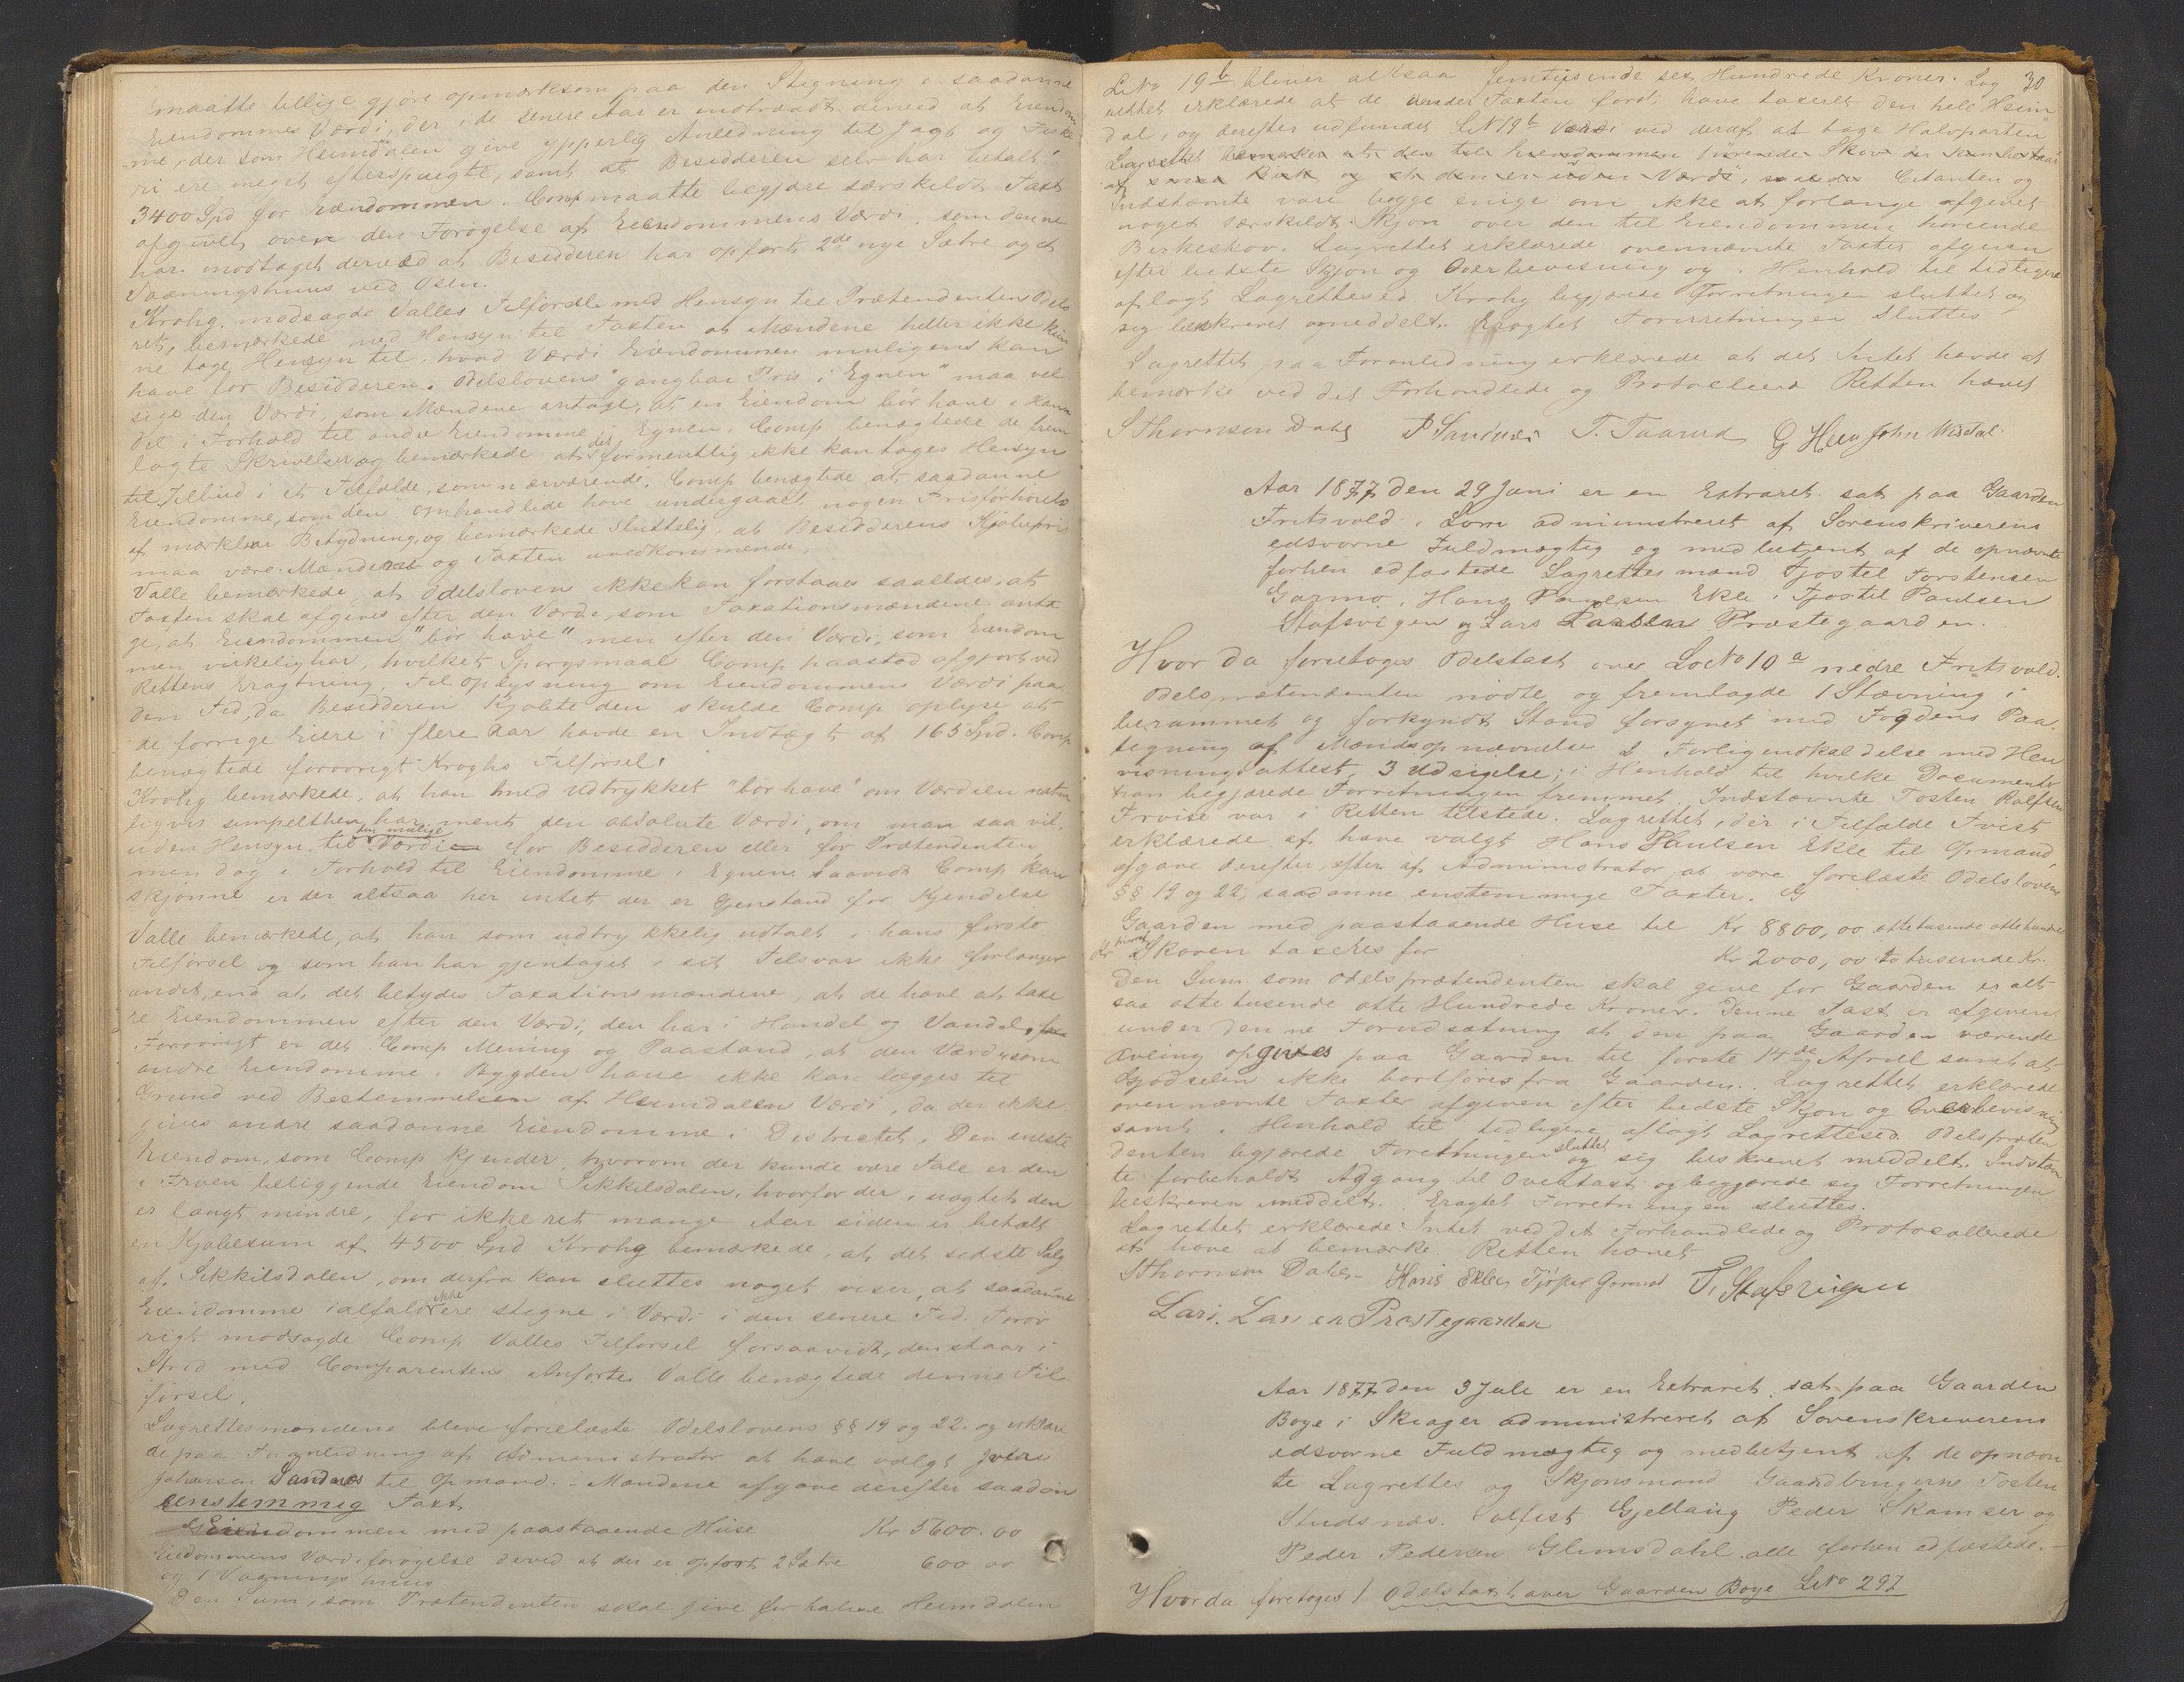 maatte tillige gjøre opmærksom paa den Stigning i saadanne
Eiendommes Værdi, der i de senere Aar er indtraadt derved at Eiendom
me, der som Heimdalen give ypperlig Anledning til Jagt og Fiske
ri ere meget efterspurgte, samt at Besidderen selv har betalt
3400 Spd for Eiendommen. Comp maatte begjære særskildt Taxt
afgivet over den Forøgelse af Eiendommens Værdi som denne
har modtaget derved at Besidderen har opført 2de nye Sætre og et
Vaaningshuus ved Osen.
Krohg modsagde Valles Tilførsel med Hensyn til Prætendentens Odels
ret, bemærkede med Hensyn til Taxten at Mændene heller ikke kun
ne tage Hensyn til, hvad Værdi Eiendommen muligens kan
have for Besidderen. Odelslovens "gangbar Pris i Egnen" maa vel
sige den Værdi, som Mændene antage, at en Eiendom bør have i Han
del i Forhold til andre Eiendomme i Egnen. Comp benægtede de frem
lagte Skrivelser og bemærkede at der formentlig ikke kan tages Hensyn
til Tilbud i et Tilfælde, som nærværende. Comp benægtede at saadanne
Eiendomme, som den omhandlede have undergaaet nogen Prisforhøielse
af mærkbar Betydning, og bemærkede sluttelig, at Besidderens Kjøbepris
maa være Mændene og Taxten uvedkommende.
Valle bemærkede, at Odelsloven ikke kan forstaaes saaledes, at
Taxten skal afgives efter den Værdi, som Taxationsmændene anta
ge, at Eiendommen "bør have" men efter den Værdi, som Eiendom
men virkelig har, hvilket Spørgsmaal Comp paastod afgjort ved
Rettens Eragtning. Til Oplysning om Eiendommens Værdi paa
den Tid, da Besidderen Kjøbte den skulde Comp oplyse at
de forrige Eiere i flere Aar havde en Indtægt af 165 Spd. Comp
benægtede forøvrigt Kroghs Tilførsel.
Krohg bemærkede, at han med Udtrykket "bør have" om Værdien natur
ligvis simpelthen har ment den absolute Værdi, om man saa vil,
uden Hensyn til den mulige Værdien for Besidderen eller for Prætendenten
men dog i Forhold til Eiendomme i Egnen. Saavidt Comp kan
skjønne er der altsaa her intet der er Gjenstand for Kjendelse
Valle bemærkede, at han som udtrykkelig udtalt i hans første
Tilførsel og som han har gjentaget i sit Tilsvar ikke forlanger
andet, end at det betydes Taxationsmændene, at de have at taxe
re Eiendommen efter den Værdi, den har i Handel og Vandel.
Forøvrigt er det Comp Mening og Paastand, at den Værdi som
andre Eiendomme i Bygden have ikke kan lægges til
Grund ved Bestemmelsen af Heimdalens Værdi, da der ikke
gives andre saadanne Eiendomme i Districtet. Den eneste
Eiendom, som Comp kjender, hvorom der kunde være Tale er den
i Froen beliggende Eiendom Sikkilsdalen, hvorfor der, uagtet den
er langt mindre, for ikke ret mange Aar siden er betalt
en Kjøbesum af 4500 Spd Krohg bemærkede, at det sidste Salg
af Sikkilsdalen, om derfra kan sluttes noget viser, at saadanne
Eiendomme ialfald ikke ere stegne i Værdi i den senere Tid. Forøv
rigt modsagde Comp Valles Tilførsel forsaavidt, den staar i
Strid med Comparentens Anførte Valle benægtede denne Til
førsel.
Lagrettesmændene bleve forelæste Odelslovens §§ 19 og 22. og erklære
de paa Foranledning af Administrator at have valgt
Johansen Sandnes til Opmand. - Mændene afgave derefter saadan
enstemmig Taxt
Eiendommen med paastaaende Huse Kr 5600.00
Eiedommens Værdiforøgelse derved at der er opført 2 Sætre 600 00
og 1 Vaaningshuus
Den Sum, som Prætendenten skal give for halve Heimdalen
30
LNo 19b bliver altsaa femtusinde sex Hundrede Kroner. Lag
rettet erklærede at de under Taxten først have taxeret den hele Heim
dal, og derefter udfundet LN 19b Værdi ved deraf at tage Halvparten
Lagrettet bemærker at den til Eiendommen hørende Skov er kun bestaar
af Birk og at den er uden Værdi, Citanten og
Indstævnte vare begge enige om ikke at forlange afgivet
noget særskildt Skjøn over den til Eiendommen hørende
Birkeskov. Lagrettet erklærede ovennævnte Taxter afgiven
efter bedste Skjøn og Overbeviisning og i Henhold til tidligere
aflagt Lagrettesed. Krohg begjærede Forretningen sluttet og
sig beskrevet meddelt. Eragtet Forretningen sluttes
Lagrettet paa Foranledning erklærede at det Intet havde at
bemærke ved det Forhandlede og Protocollerede Retten hævet
S Thomsen Dahl T. Taarud G Heen John Visdal.
Aar 1877 den 29 Juni er en Extraret sat paa Gaarden
Fritsvold i Lom administreret af Sorenskriverens
edsvorne Fuldmægtig og med betjent af de opnævnte
forhen edfæstede Lagrettesmænd Tjøstel Torstensen
Garmo, Hans Paulsen Ekle, Tjøstel Paulsen
Stafsvigen og Lars Larsen Præstegaarden.
Hvor da foretoges Odelstaxt over LøNo 10a nedre Fritsvold.
Odelsprætendenten mødte og fremlagde 1 Stævning i
berammet og forkyndt Stand forsynet med Fogdens Paa
tegning af Mændsopnævnelse 2 Forligsindkaldelse med Hen
visningsattest, 3 Udsigelse; i Henhold til hvilke Documenter
han begjærede Forretningen fremmet. Indstævnte Tosten Rolfsen
Frvise var i Retten tilstede. Lagrettet, der i Tilfælde Tvist
erklærede at have valgt Hans Paulsen Ekle til Opmand,
afgave derefter efter af Administrator at være forelæste Odelslovens
§§ 19 og 22, saadanne enstemmige Taxter.
Gaarden med paastaaende Huse til Kr 8800,00 otte tusende otte hundrede
Skoven taxeres for Kr 2000,00 to tusunde Kr.
Den Sum som Odelsprætendenten skal give for Gaarden er alt
saa otte tusende otte Hundrede Kroner. Denne Taxt er afgiven
under denne Forudsætning at den paa Gaarden værende
Avling opgives paa Gaarden til første 14de April samt at
Gjødselen ikke bortføres fra Gaarden. Lagrettet erklærede
ovennævnte Taxter afgiven efter bedste Skjøn og Overbevisning
samt i Henhold til tidligere aflagt Lagrettesed. Odelspræten
denten begjærede Forretningen sluttet og sig beskrevet meddelt. Indstævn
te forbeholdt Adgang til Overtaxt og begjærede sig Forretningen
beskreven meddelt. Eragtet Forretningen sluttes.
Lagrettet erklærede Intet ved det Forhandlede og Protocollerede
at have at bemærke. Retten hævet
S Thomsen Dahl - Hans Ekle T. Stafsvigen
Lars. Larsen Prestegaarden
Aar 1877 den 3 Juli er en Extraret sat paa Gaarden
Boye i Skiager administreret af Sorenskriverens
edsvorne Fuldmægtig og medbetjent af de opnævn
te Lagrettes og Skjønsmænd Gaardbrugerne Tosten
Studsnæs. Gjellaug Peder Skamser og
Peder Pedersen Glimsdahl alle forhen edfæstede. -
Hvor da foretoges 1 Odelstaxt over Gaarden Boye LNo 297